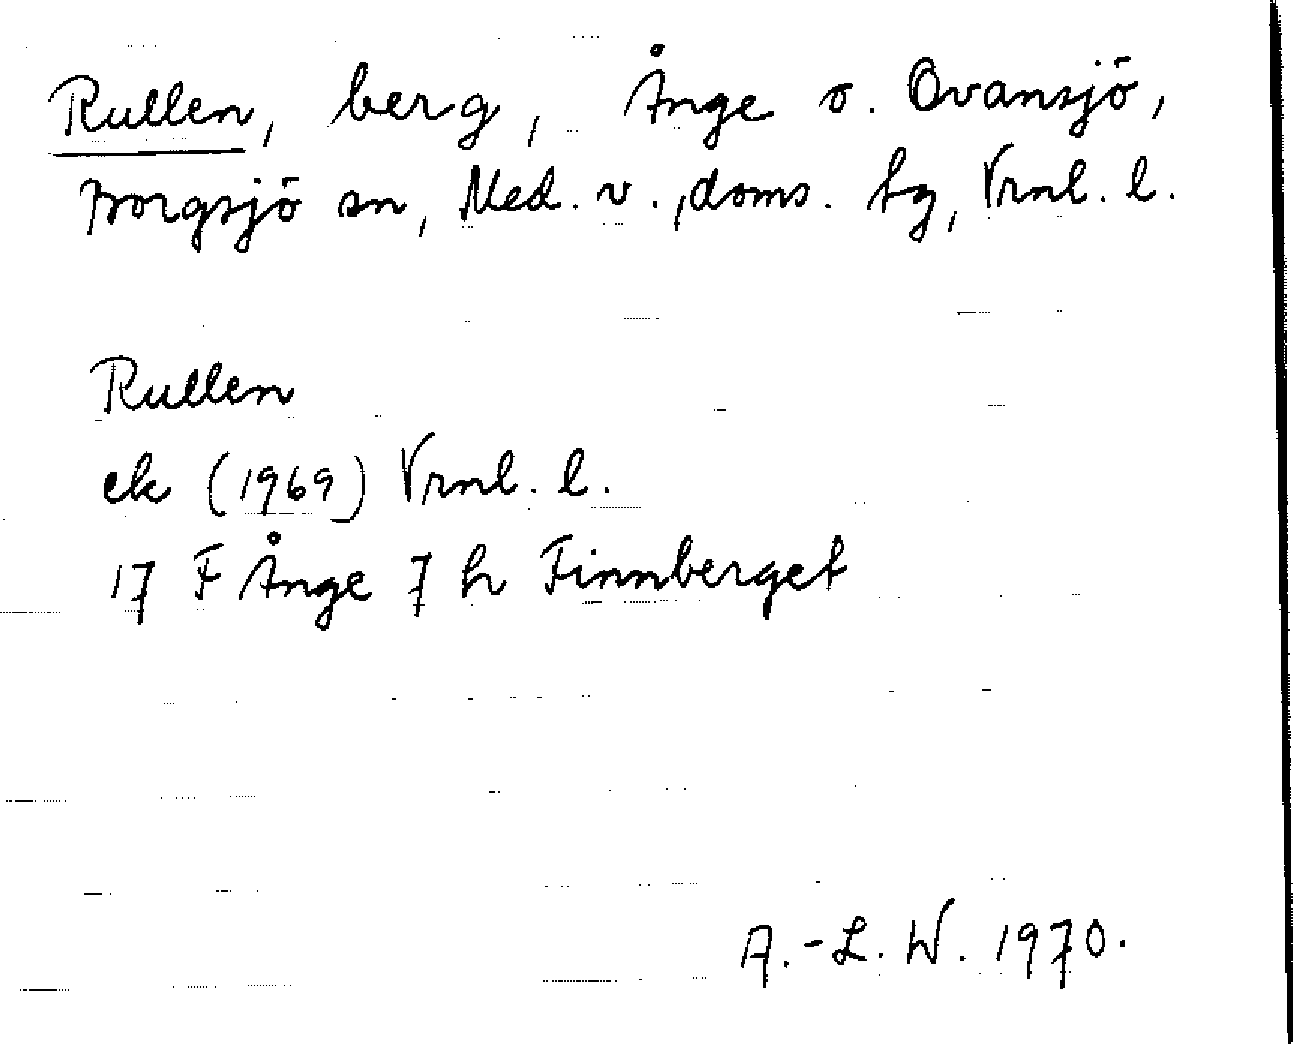 Rullen, berg, Ånge o. Ovansjö,
Borgsjö sn, Med. v., doms. tg, Vrnl. l.
Rullen
ek (1969) Vrnl. l.
17 F Ånge 7 h Finnberget
A.-L. W. 1970.